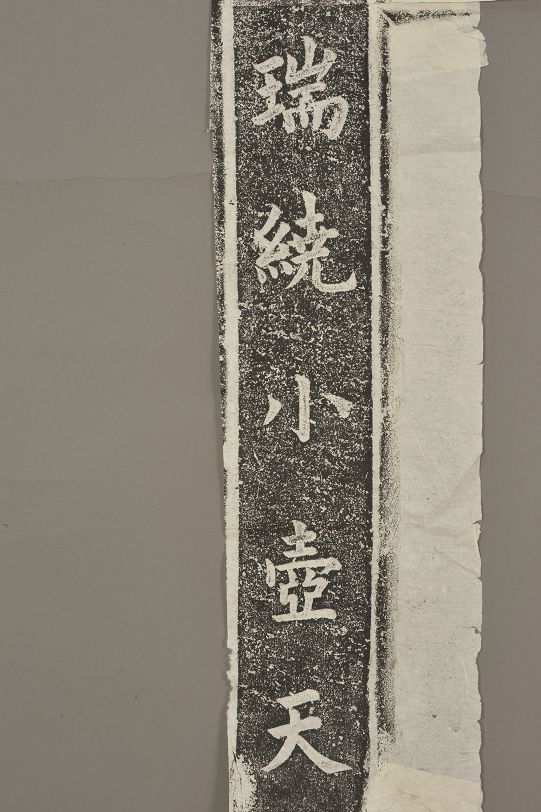 瑞繞小壺天